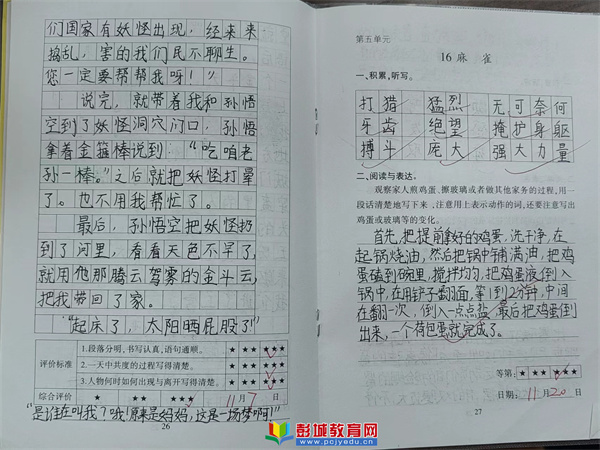 们国家有妖怪出现，经来来
捣乱，害的我们民不聊生。
您一定要帮帮我呀！”
说完，就带着我和孙悟
空到了妖怪洞穴门口，孙悟
拿着金箍棒说到：“吃咱老
孙一棒。”之后就把妖怪打晕
了。也不用我帮忙了。
最后，孙悟空把妖怪扔
到了河里，看看天色不早了，
就用他那腾云驾雾的金斗云，
把我带回了家。
“起床了，太阳晒屁股了！”
评价标准
1.段落分明、书写认真，语句通顺。 ★ ★★ ★★★
2.一天中共度的过程写得清楚。 ★ ★★ ★★★
3.人物何时如何出现与离开写得清楚。 ★ ★★ ★★★
综合评价 ★ ★★ ★★★ 11月7日
“是谁在叫我？哦！原来是妈妈，这是一场梦啊！”
26
第五单元
16 麻 雀
一、积累，听写。
打猎 猛烈 无可奈何
牙齿 绝望 掩护身躯
搏斗 庞大 强大力量
二、阅读与表达。
观察家人煎鸡蛋、擦玻璃或者做其他家务的过程，用一
段话清楚地写下来、注意用上表示动作的词，还要注意写出
鸡蛋或玻璃等的变化。
首先，把提前拿好的鸡蛋，洗干净，在
起锅烧油，然后把锅中铺满油，把鸡
蛋磕到碗里，搅拌均匀，把鸡蛋液倒入
锅中，在用铲子翻面，等1到2分钟，中间
在翻一次，倒入一点点盐，最后把鸡蛋倒
出来，一个荷包蛋就完成了。
等第： ★ ★★ ★★★
日期：11月20日
27
彭城教育网
www.pcjyedu.cn